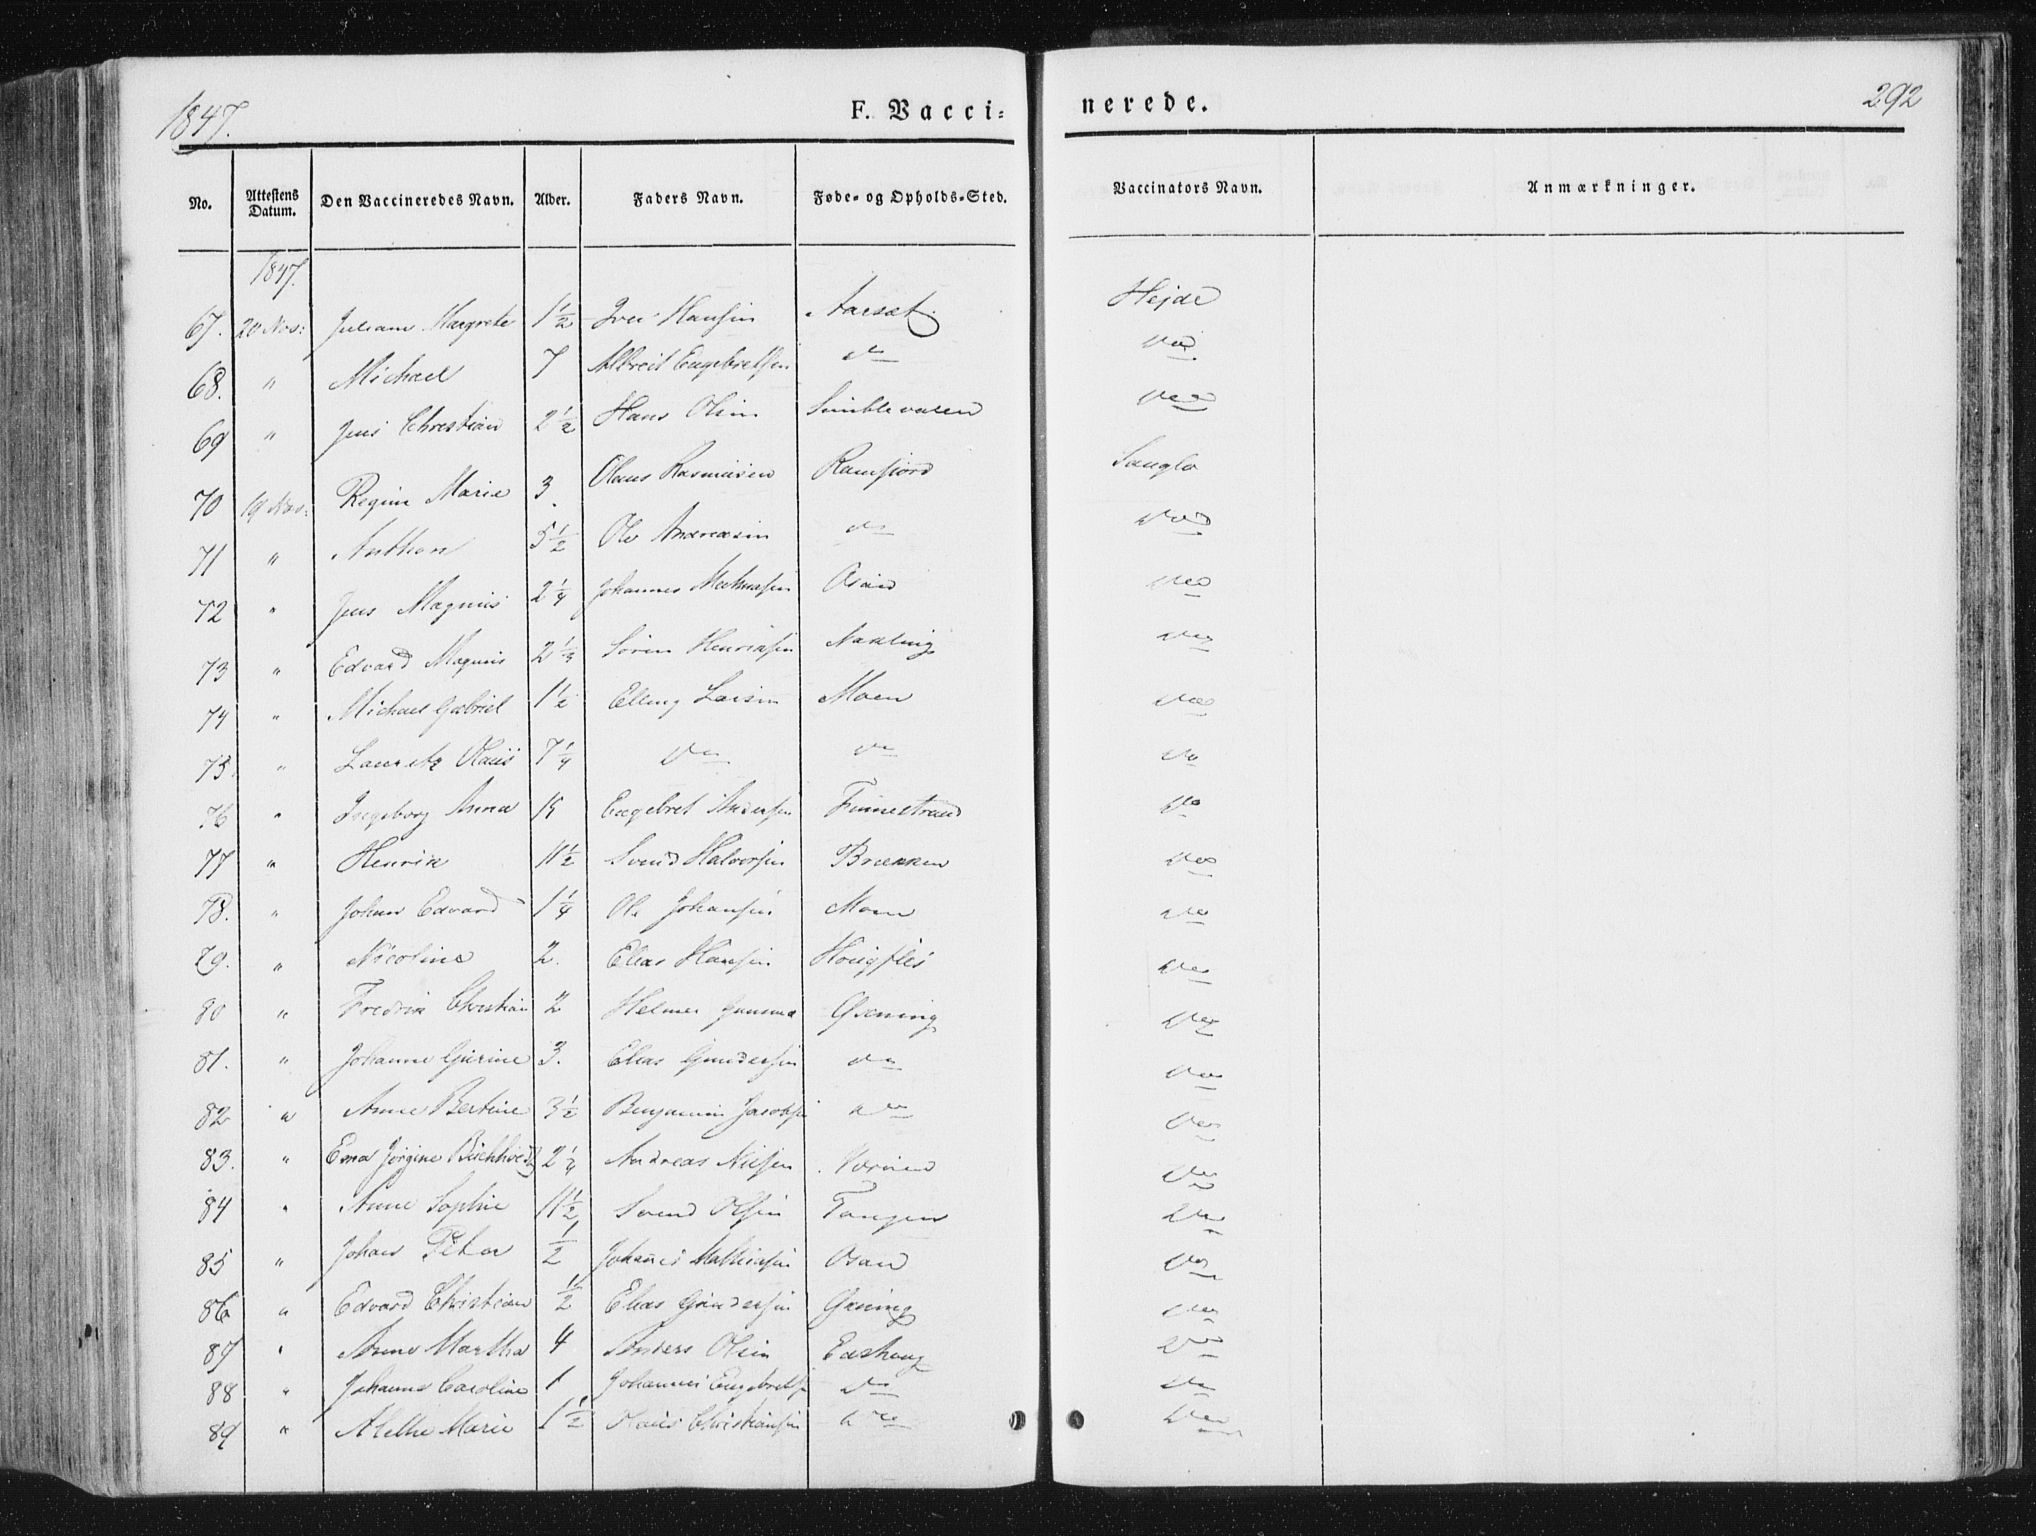 1847. F. Vacci= nerede. 292
No. Attestens Datum. Den Vaccineredes Navn. Alder. Faders Navn. Føde= og Opholds=Sted. Vaccinators Navn. Anmærkninger.
1847.
67. 20 Nov: Juliane Margrete 1½ Iver Hansen Aarsæt Hejde
68. " Michael 7 Albreit Engebretsen do do
69 " Jens Christian 2½ Hans Olsen do
70 19 Nov: Regine Marie 3. Olaus Rasmusen Ramfjord Sanglo
71 " Anthon 5½ Ole Andreasen do do
72 " Jens Magnus 2¼ Johannes Osan do
73 " Edvard Magnus Søren Henriksen Nakling do
74 " Michael Gabriel 1½ Elling Larsen Moen do
75. " Lauritz Olaus 7¼ do do do
76 " Ingeborg Anna 15 Engebret Andersen Finnestrand do
77 " Henrik 11½ Svend Halvorsen Brækken do
78. " Johan Edvard 1¼ Ole Johansen Moen do
79. " Nicoline 2. Elias Hansen do
80 " Fredrik Christian 2 Helmer Gxning do
81. " Johanne Gurine 3. Elias Gundersen do do
82 " Anne Bertine 3½ Benjamin Jacobse do do
83. " Jørgine 2¼ Andreas Nilsen do
84 " Anne Sophie 11½ Svend Olsen Tangen do
85 " Johan Peter ½ Johanes Mathiasen Osan do
86 " Edvard Christian ½ Elias Gundersen Gxning do
87 " Anne Martha 4 Anders Olsen do
88 " Johanna Caroline 1 Johannes Engebretse do do
89 " Mette Marie 1½ Olaus Christiansen do do